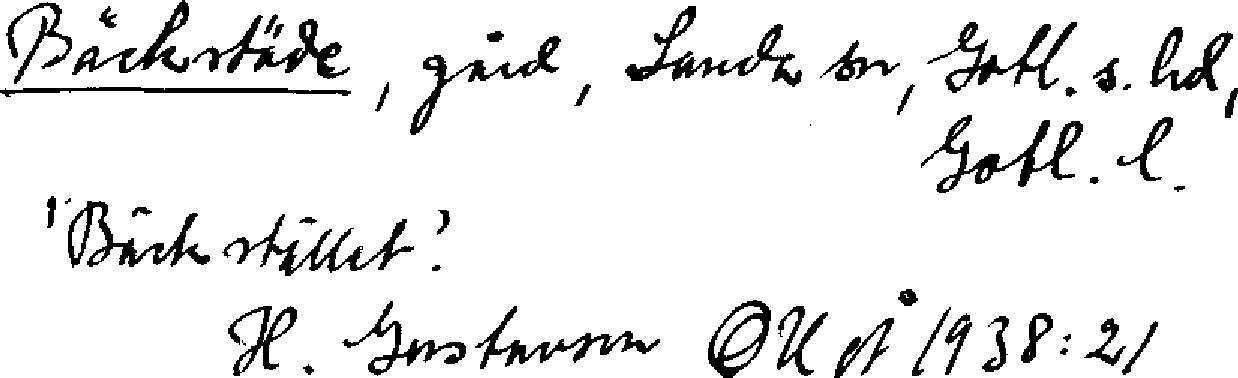 Bäckstäde, gård, Sanda sn, Gotl. s. hd,
Gotl. l.
'Bäckstället'.
H. Gustavson OUÅ 1938:21